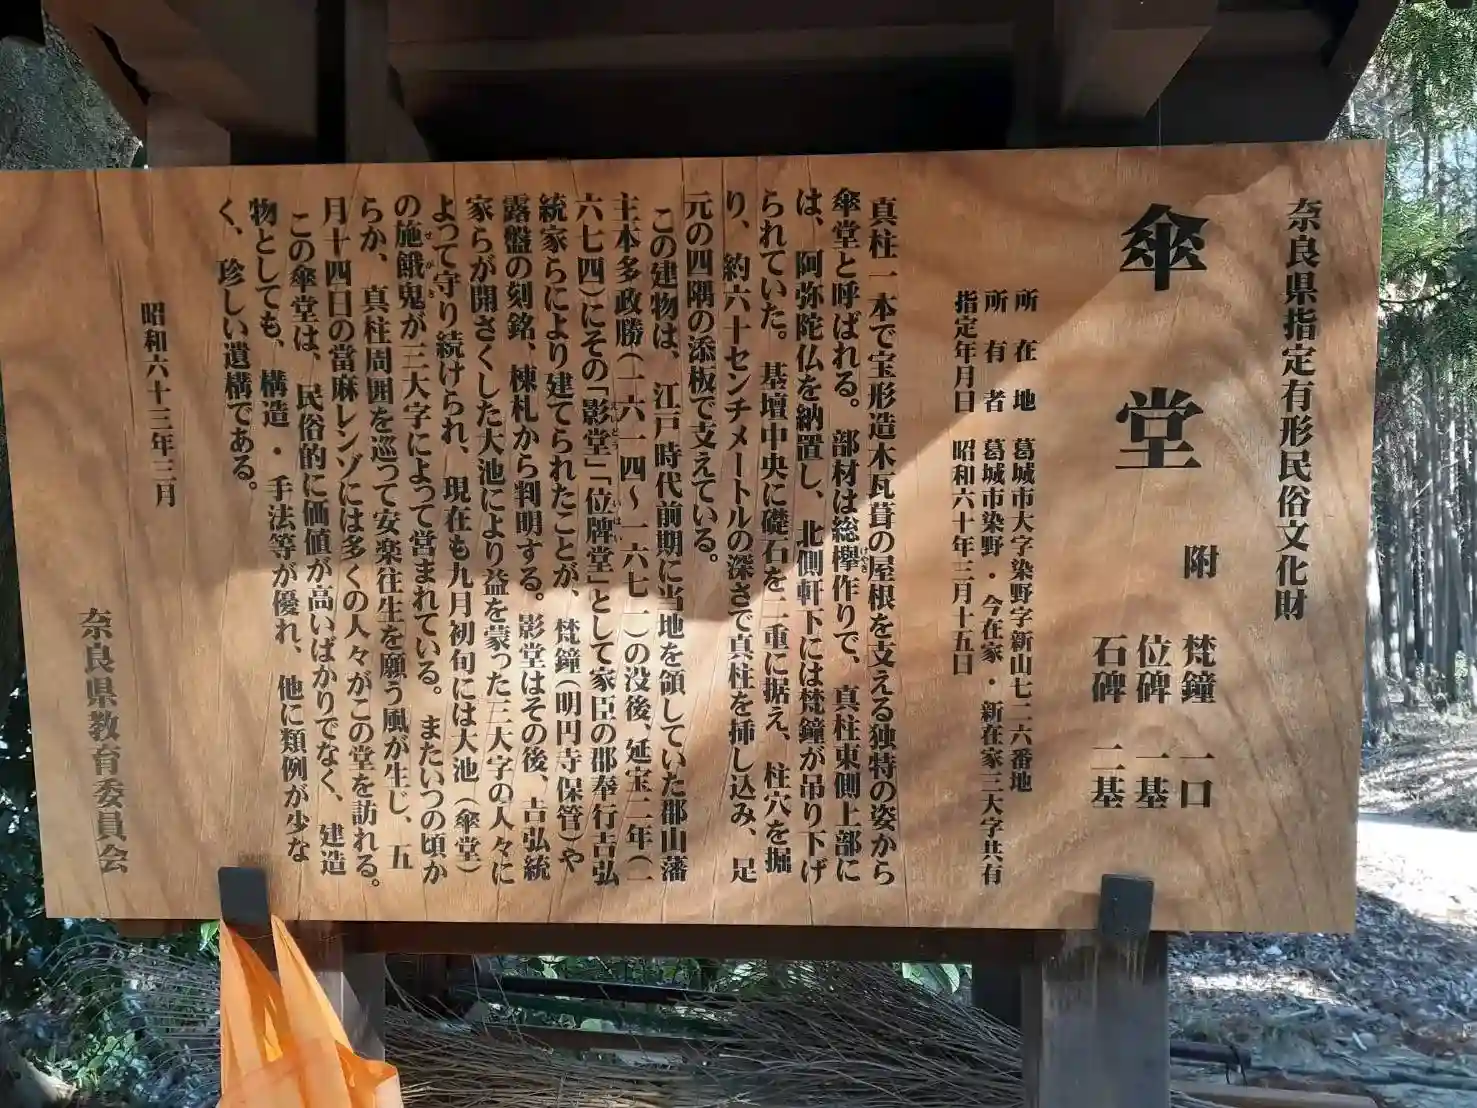 奈良県指定有形民俗文化財
傘堂
附 梵鐘 一口
位碑 一基
石碑 二基
所在地 葛城市大字染野字新山七二六番地
所有者 葛城市染野・今在家・新在家三大字共有
指定年月日 昭和六十年三月十五日
真柱一本で宝形造木瓦葺の屋根を支える独特の姿から
傘堂と呼ばれる。部材は総欅作りで、真柱東側上部に
は、阿弥陀仏を納置し、北側軒下には梵鐘が吊り下げ
られていた。基壇中央に礎石を二重に据え、柱穴を掘
り、約六十センチメートルの深さで真柱を挿し込み、足
元の四隅の添板で支えている。
この建物は、江戸時代前期に当地を領していた郡山藩
主本多政勝(一六一四〜一六七一)の没後、延宝二年(一
六七四)にその「影堂」「位牌堂」として家臣の郡奉行吉弘
統家らにより建てられたことが、梵鐘(明円寺保管)や
露盤の刻銘、棟札から判明する。影堂はその後、吉弘統
家らが開さくした大池により益を蒙った三大字の人々に
よって守り続けられ、現在も九月初旬には大池(傘堂)
の施餓鬼が三大字によって営まれている。またいつの頃か
らか、真柱周囲を巡って安楽往生を願う風が生じ、五
月十四日の當麻レンゾには多くの人々がこの堂を訪れる。
この傘堂は、民俗的に価値が高いばかりでなく、建造
物としても、構造・手法等が優れ、他に類例が少な
く、珍しい遺構である。
昭和六十三年三月
奈良県教育委員会